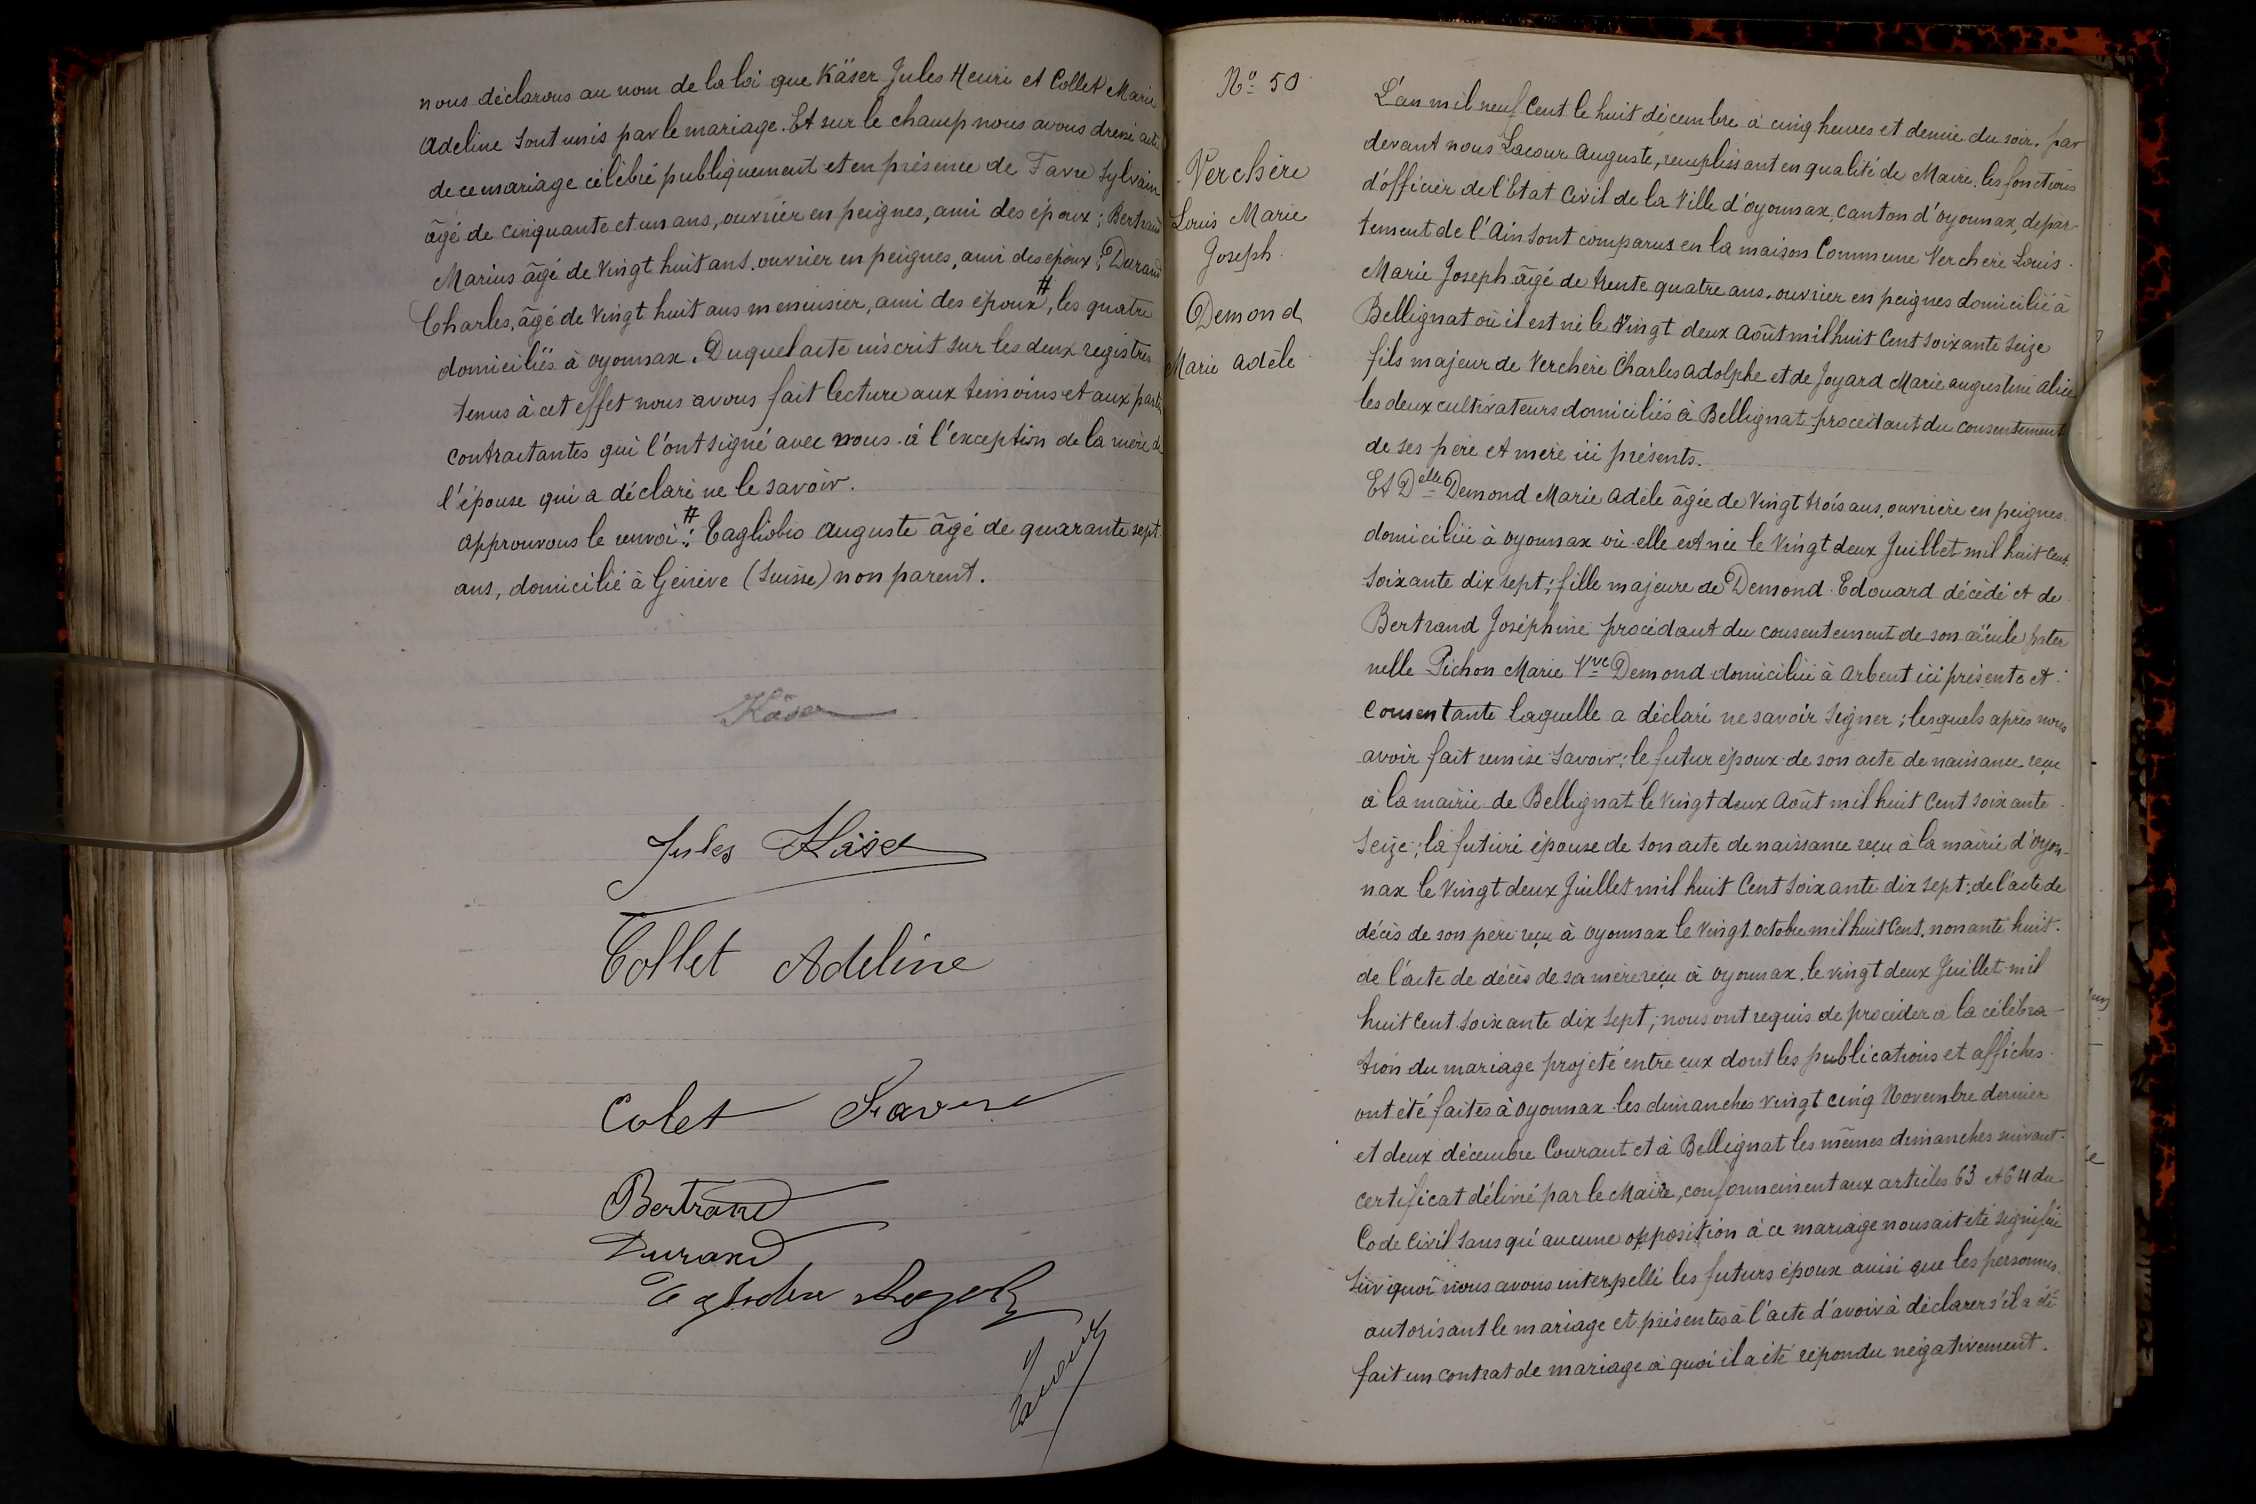 nous déclarons au nom de la loi que Käser Jules Henri et Collet Marie
Adeline sont unis par le mariage. Et sur le champ nous avons dressé acte
de ce mariage célébré publiquement et en présence de Favre Sylvain
âgé de cinquante et un ans, ouvrier en peignes, ami des époux ; Bertrand
Marius âgé de vingt huit ans, ouvrier en peignes, ami des époux ; Durand
Charles, âgé de vingt huit ans menuisier, ami des époux #, les quatre
domiciliés à Oyonnax. Duquel acte inscrit sur les deux registres
tenus à cet effet nous avons fait lecture aux témoins et aux parties
contractantes qui l'ont signé avec nous à l'exception de la mère de
l'épouse qui a déclaré ne le savoir.
approuvons le renvoi # : Tagliobio Auguste âgé de quarante sept
ans, domicilié à Genève (Suisse) non parent.
Käser
Jules Käser
Collet Adeline
Colet Favre
Bertrand
Durand
N° 50
Verchère
Louis Marie
Joseph
Demond
Marie Adèle
L'an mil neuf cent le huit décembre à cinq heures et demie du soir, par
devant nous Lacour Auguste, remplissant en qualité de Maire, les fonctions
d'officier de l'Etat Civil de la Ville d'Oyonnax, canton d'Oyonnax, dépar-
tement de l'Ain sont comparus en la maison Commune Verchère Louis
Marie Joseph âgé de trente quatre ans, ouvrier en peignes domicilié à
Bellignat où il est né le vingt deux Août mil huit cent soixante seize
fils majeur de Verchère Charles Adolphe et de Joyard Marie Augustine Alice
les deux cultivateurs domiciliés à Bellignat procédant du consentement
de ses père et mère ici présents.
Et Delle Demond Marie Adèle âgée de vingt trois ans, ouvrière en peignes
domiciliée à Oyonnax où elle est née le vingt deux Juillet mil huit cent
soixante dix sept ; fille majeure de Demond Edouard décédé et de
Bertrand Joséphine procédant du consentement de son aïeule pater
nelle Pichon Marie Vve Demond domiciliée à Arbent ici présente et
consentante laquelle a déclaré ne savoir signer ; lesquels après nous
avoir fait remise savoir : le futur époux de son acte de naissance reçu
à la mairie de Bellignat le vingt deux Août mil huit cent soixante
seize ; la future épouse de son acte de naissance reçu à la mairie d'Oyon-
nax le vingt deux Juillet mil huit cent soixante dix sept ; de l'acte de
décès de son père reçu à Oyonnax le vingt octobre mil huit cent nonante huit
de l'acte de décès de sa mère reçu à Oyonnax le vingt deux Juillet mil
huit cent soixante dix sept ; nous ont requis de procéder à la célébra-
tion du mariage projeté entre eux dont les publications et affiches
ont été faites à Oyonnax les dimanches vingt cinq Novembre dernier
et deux décembre Courant et à Bellignat les mêmes dimanches suivant
certificat délivré par le Maire, conformément aux articles 63 et 64 du
Code Civil sans qu'aucune opposition à ce mariage nous ait été signifiée
Sur quoi nous avons interpellé les futurs époux ainsi que les personnes
autorisant le mariage et présentes à l'acte d'avoir à déclarer s'il a été
fait un contrat de mariage à quoi il a été répondu négativement.